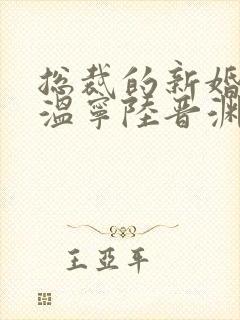 总裁的新婚
温寧陸晋渊
王亞平